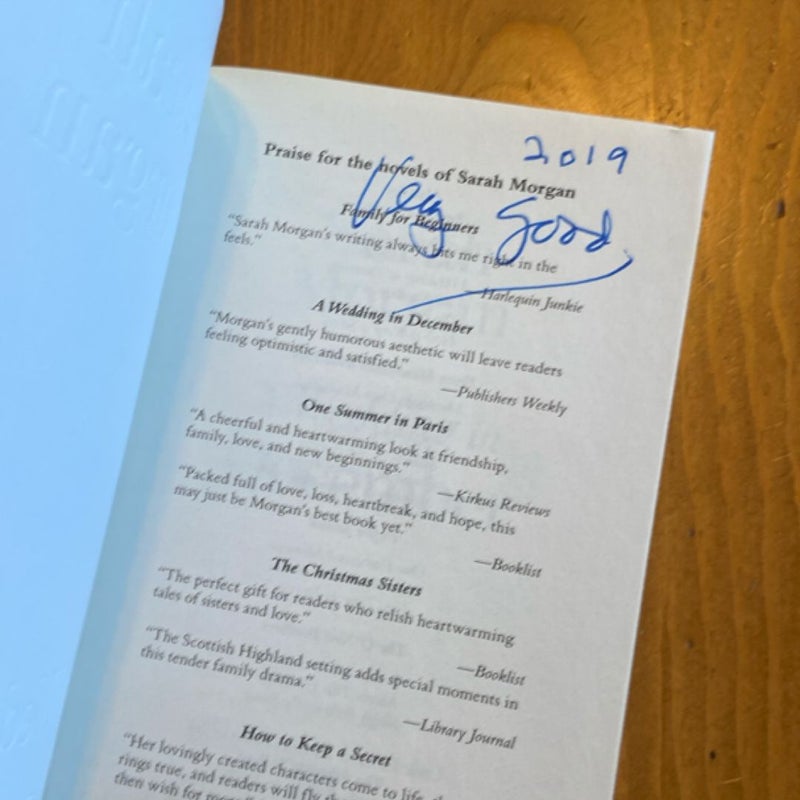 2019
Praise for the novels of Sarah Morgan
Very Good
Family for Beginners
“Sarah Morgan’s writing always hits me right in the
feels.”
—Harlequin Junkie
A Wedding in December
“Morgan’s gently humorous aesthetic will leave readers
feeling optimistic and satisfied.”
—Publishers Weekly
One Summer in Paris
“A cheerful and heartwarming look at friendship,
family, love, and new beginnings.”
—Kirkus Reviews
“Packed full of love, loss, heartbreak, and hope, this
may just be Morgan’s best book yet.”
—Booklist
The Christmas Sisters
“The perfect gift for readers who relish heartwarming
tales of sisters and love.”
—Booklist
“The Scottish Highland setting adds special moments in
this tender family drama.”
—Library Journal
How to Keep a Secret
“Her lovingly created characters come to life,
rings true, and readers will
then wish for